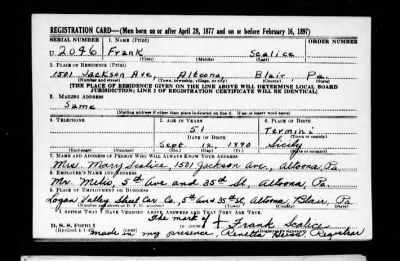 REGISTRATION CARD—(Men born on or after April 28, 1877 and on or before February 16, 1897)
SERIAL NUMBER 1. NAME (Print) ORDER NUMBER
U 2046 Frank Scalice
(First) (Middle) (Last)
2. PLACE OF RESIDENCE (Print)
1501 Jackson Ave, Altoona, Blair, Pa.
(Number and street) (Town, township, village, or city) (County) (State)
[THE PLACE OF RESIDENCE GIVEN ON THE LINE ABOVE WILL DETERMINE LOCAL BOARD
JURISDICTION; LINE 2 OF REGISTRATION CERTIFICATE WILL BE IDENTICAL]
3. MAILING ADDRESS
Same
[Mailing address if other than place indicated on line 2. If same insert word same]
4. TELEPHONE 5. AGE IN YEARS 6. PLACE OF BIRTH
51 Termini
DATE OF BIRTH (Town or county)
Sept. 12, 1890 Sicily
(Exchange) (No.) (Mo.) (Day) (Yr.) (State or country)
7. NAME AND ADDRESS OF PERSON WHO WILL ALWAYS KNOW YOUR ADDRESS
Mrs. Mary Scalice, 1501 Jackson Ave., Altoona, Pa.
8. EMPLOYER'S NAME AND ADDRESS
Mr. 5th Ave and 35th St, Altoona, Pa.
9. PLACE OF EMPLOYMENT OR BUSINESS
Logan Valley Steel Car Co, 5th Ave & 35th St, Altoona, Blair, Pa.
(Number and street or R. F. D. number) (Town) (County) (State)
I AFFIRM THAT I HAVE VERIFIED ABOVE ANSWERS AND THAT THEY ARE TRUE.
The mark of X Frank Scalice
D. S. S. Form 1
made in my presence, Registrar